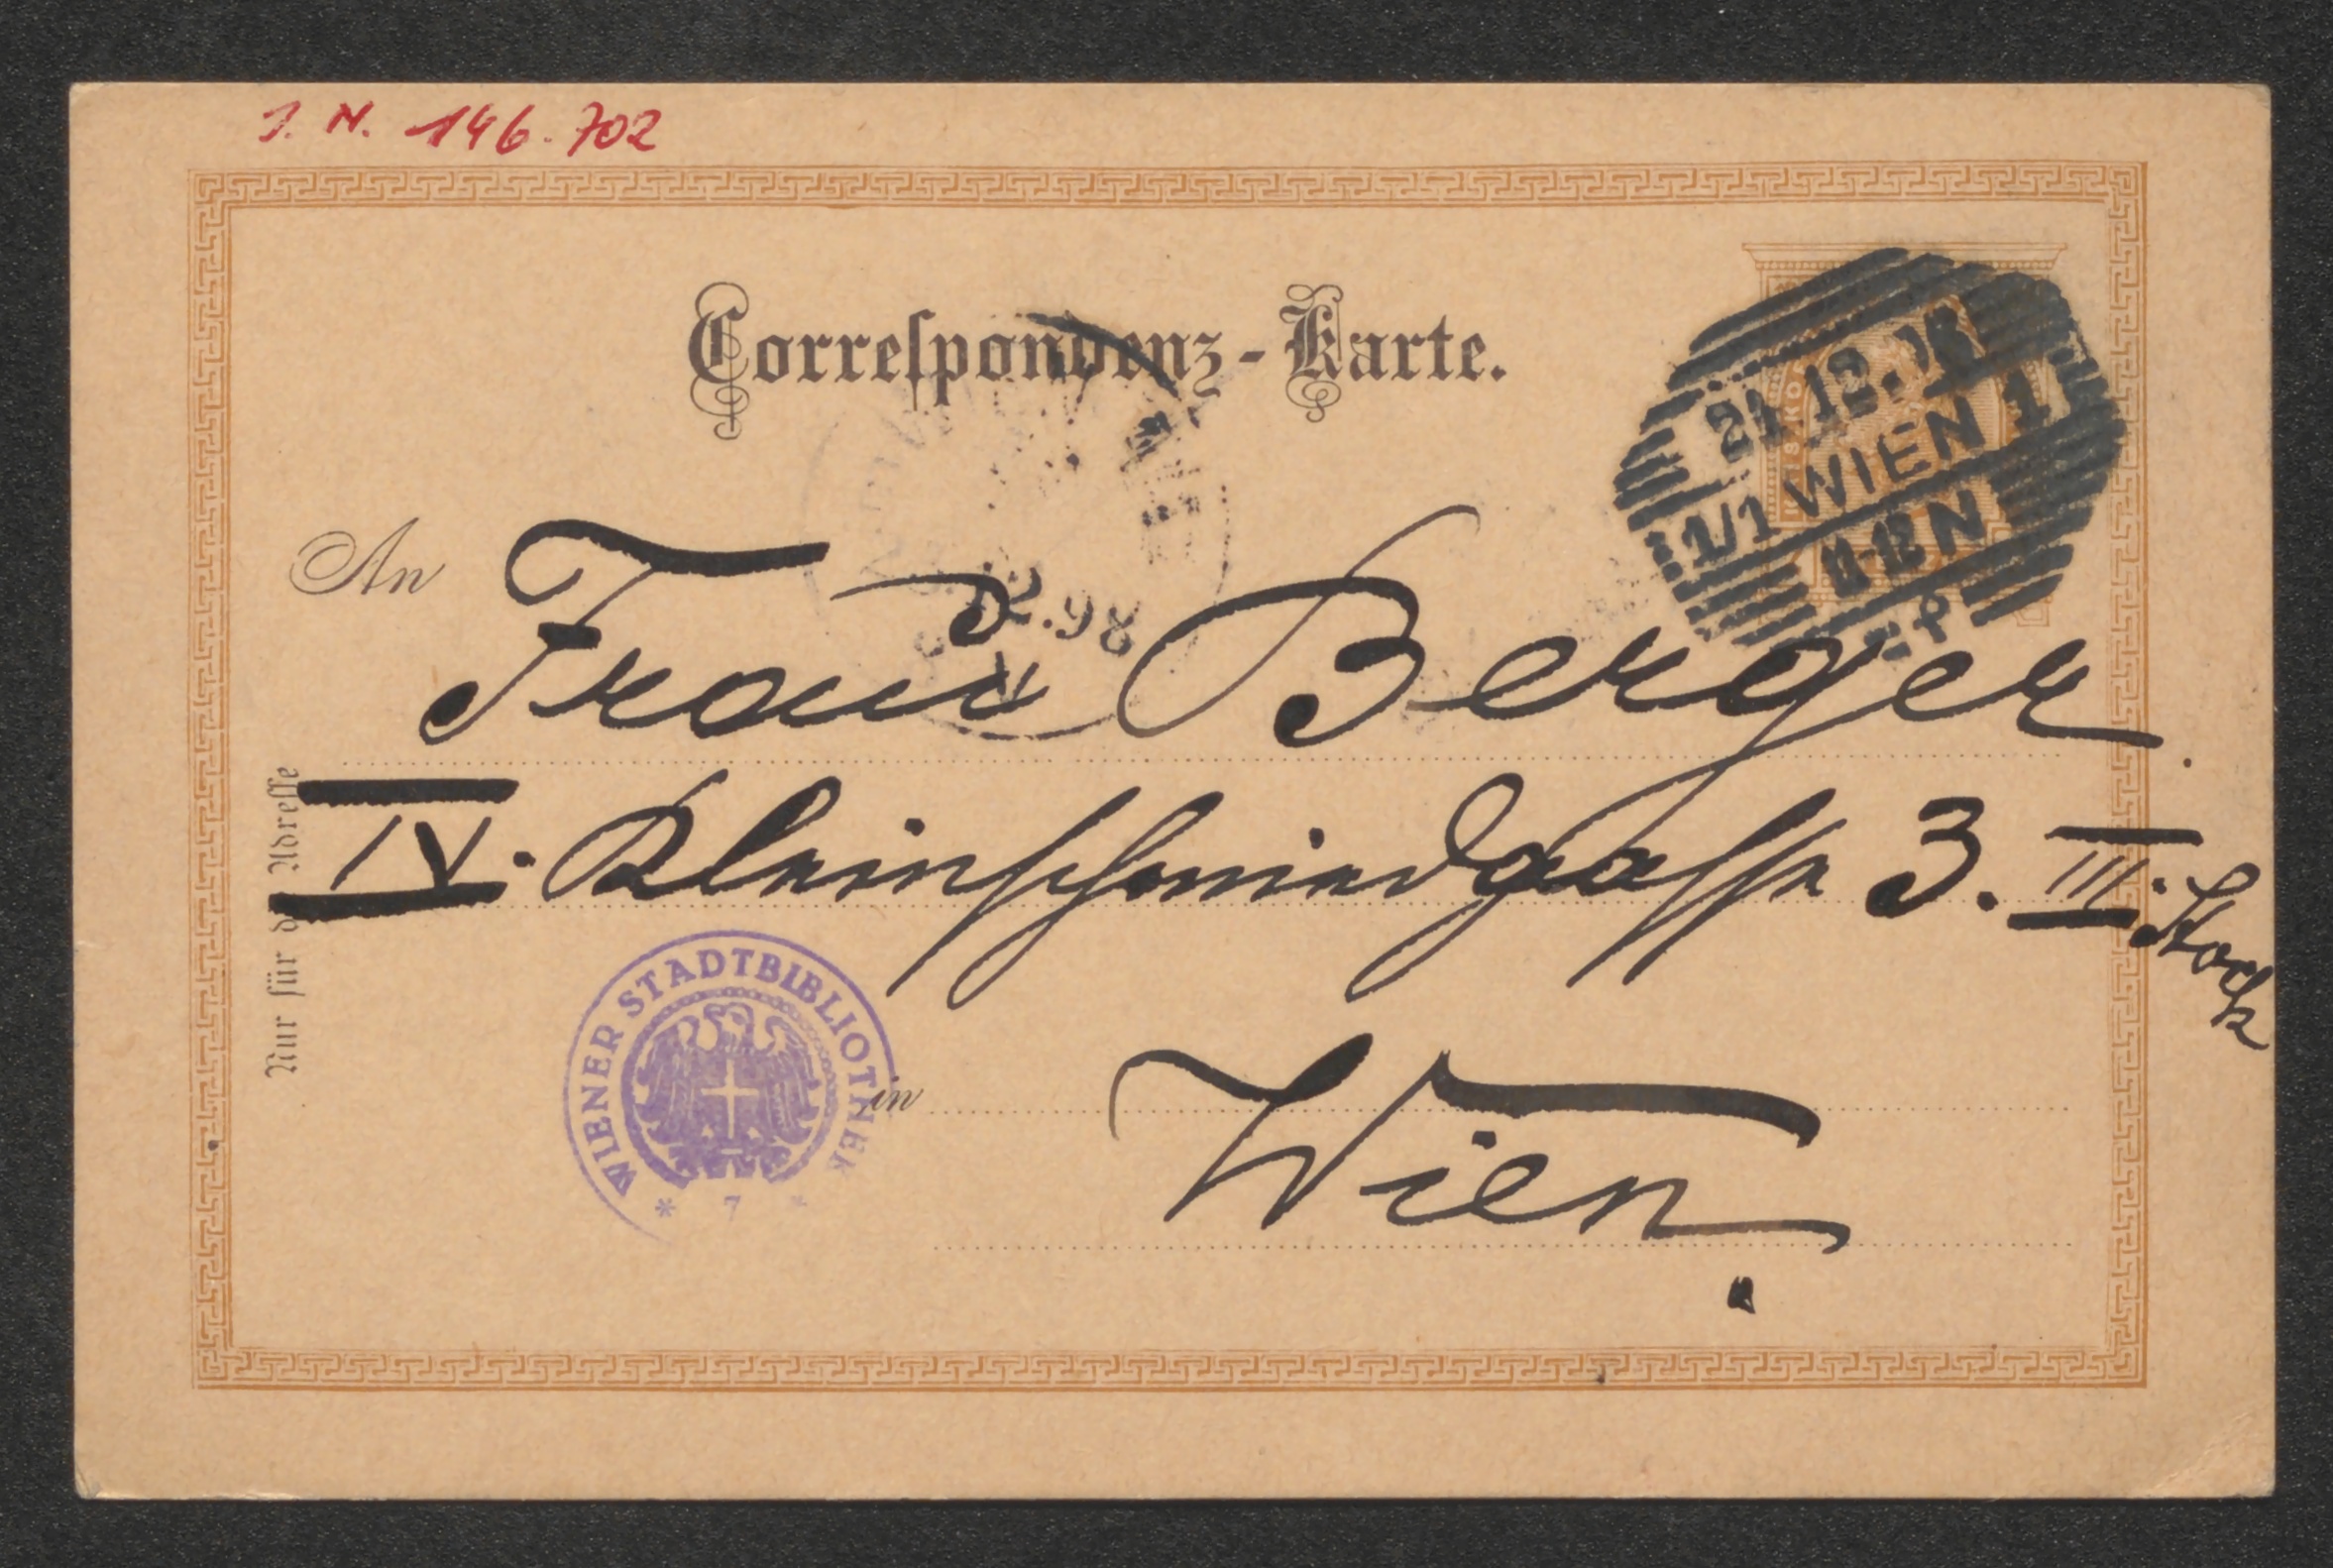 J. N. 146.702
Correſpondenz-Karte.
1/1 WIEN 1
11-12 N
12.98
An Frau Berger
IV. Kleinschmiedgasse 3. III. Stock
in Wien.
Nur für d Adreſſe
WIENER STADTBIBLIOTHEK
* 7 *